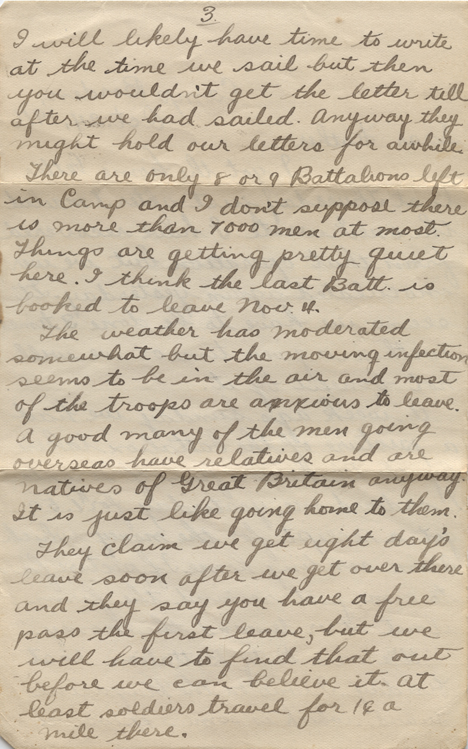 3.
I will likely have time to write
at the time we sail but then
you wouldn't get the letter till
after we had sailed. Anyway they
might hold our letters for awhile.
There are only 8 or 9 Battalions left
in Camp and I don't suppose there
is more than 7000 men at most.
Things are getting pretty quiet
here. I think the last Batt. is
booked to leave Nov. 4.
The weather has moderated
somewhat but the moving infection
seems to be in the air and most
of the troops are anxious to leave.
A good many of the men going
overseas have relatives and are
natives of Great Britain anyway.
It is just like going home to them.
They claim we get eight day's
leave soon after we get over there
and they say you have a free
pass the first leave, but we
will have to find that out
before we can believe it. At
least soldiers travel for 1¢ a
mile there.